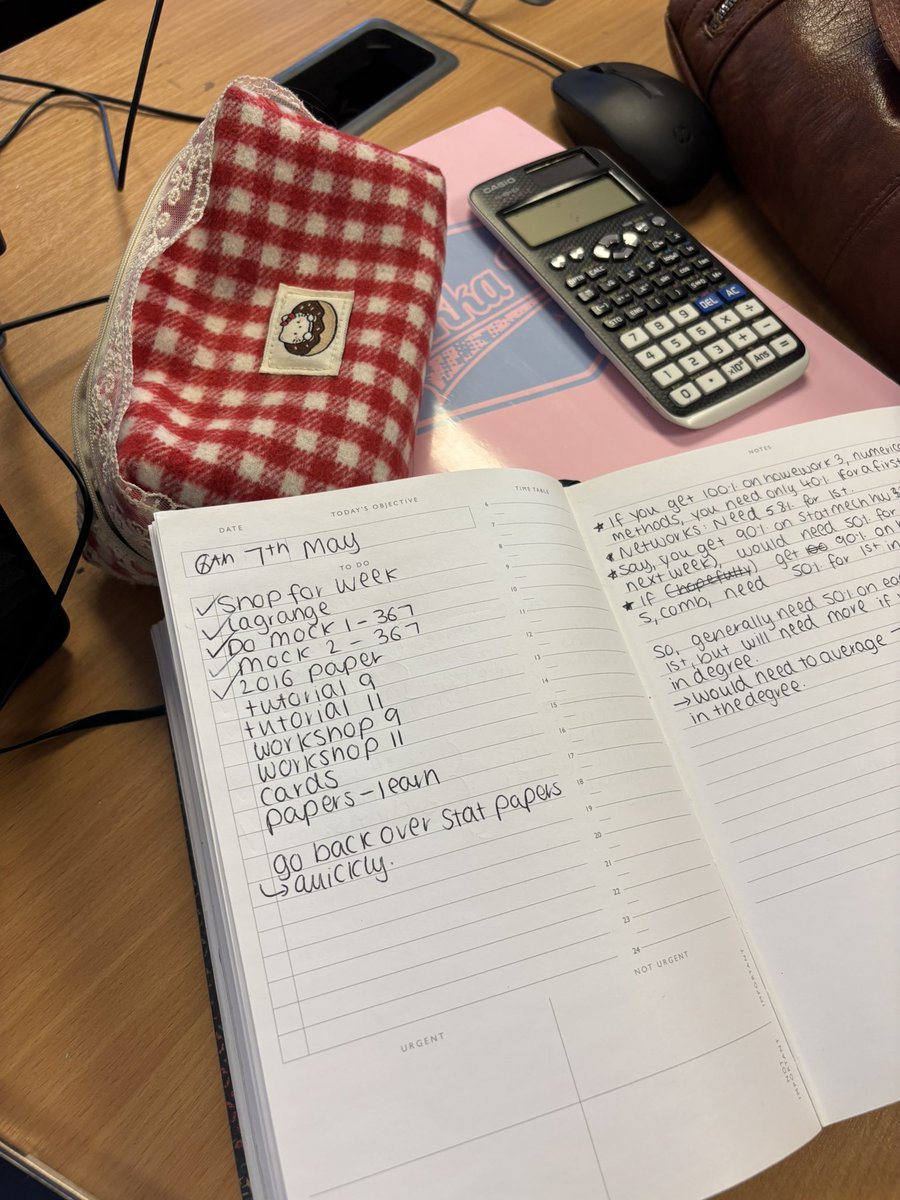 CASIO
DEL AC
7 8 9
4 5 6 × ÷
1 2 3 + −
0 • ×10ˣ Ans =
hp
nka
DATE
TODAY'S OBJECTIVE
TIME TABLE
7th May
TO DO
✓ Shop for week
✓ Lagrange
✓ Do mock 1 - 367
✓ mock 2 - 367
✓ 2016 paper
tutorial 9
tutorial 11
workshop 9
workshop 11
cards
papers - learn
go back over stat papers
↳ quickly.
6
7
8
9
10
11
12
13
14
15
16
17
18
19
20
21
22
23
24
URGENT
NOT URGENT
NOTES
★ If you get 100% on homework 3, numerical
methods, you need only 40% for a first
★ Networks: Need 58% for 1st.
★ say, you get 90% on stat mech hw 3
next week), would need 50% for
★ If (hopefully) get 90% on
5, comb, need 50% for 1st in
So, generally need 50% on
1st, but will need more if
in degree.
→ would need to average
in the degree.